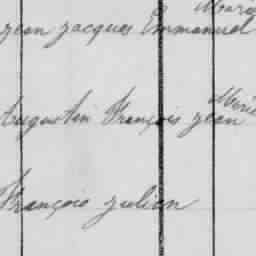 Marie
jean jacques Emmanuel
Marie
augustin François jean
François julien